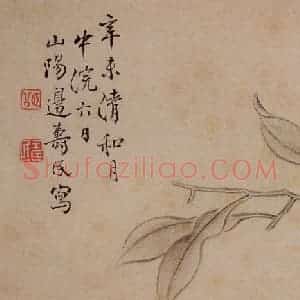 辛未清和月
中浣六日
山陽邊壽民寫
Shufaziliao.com